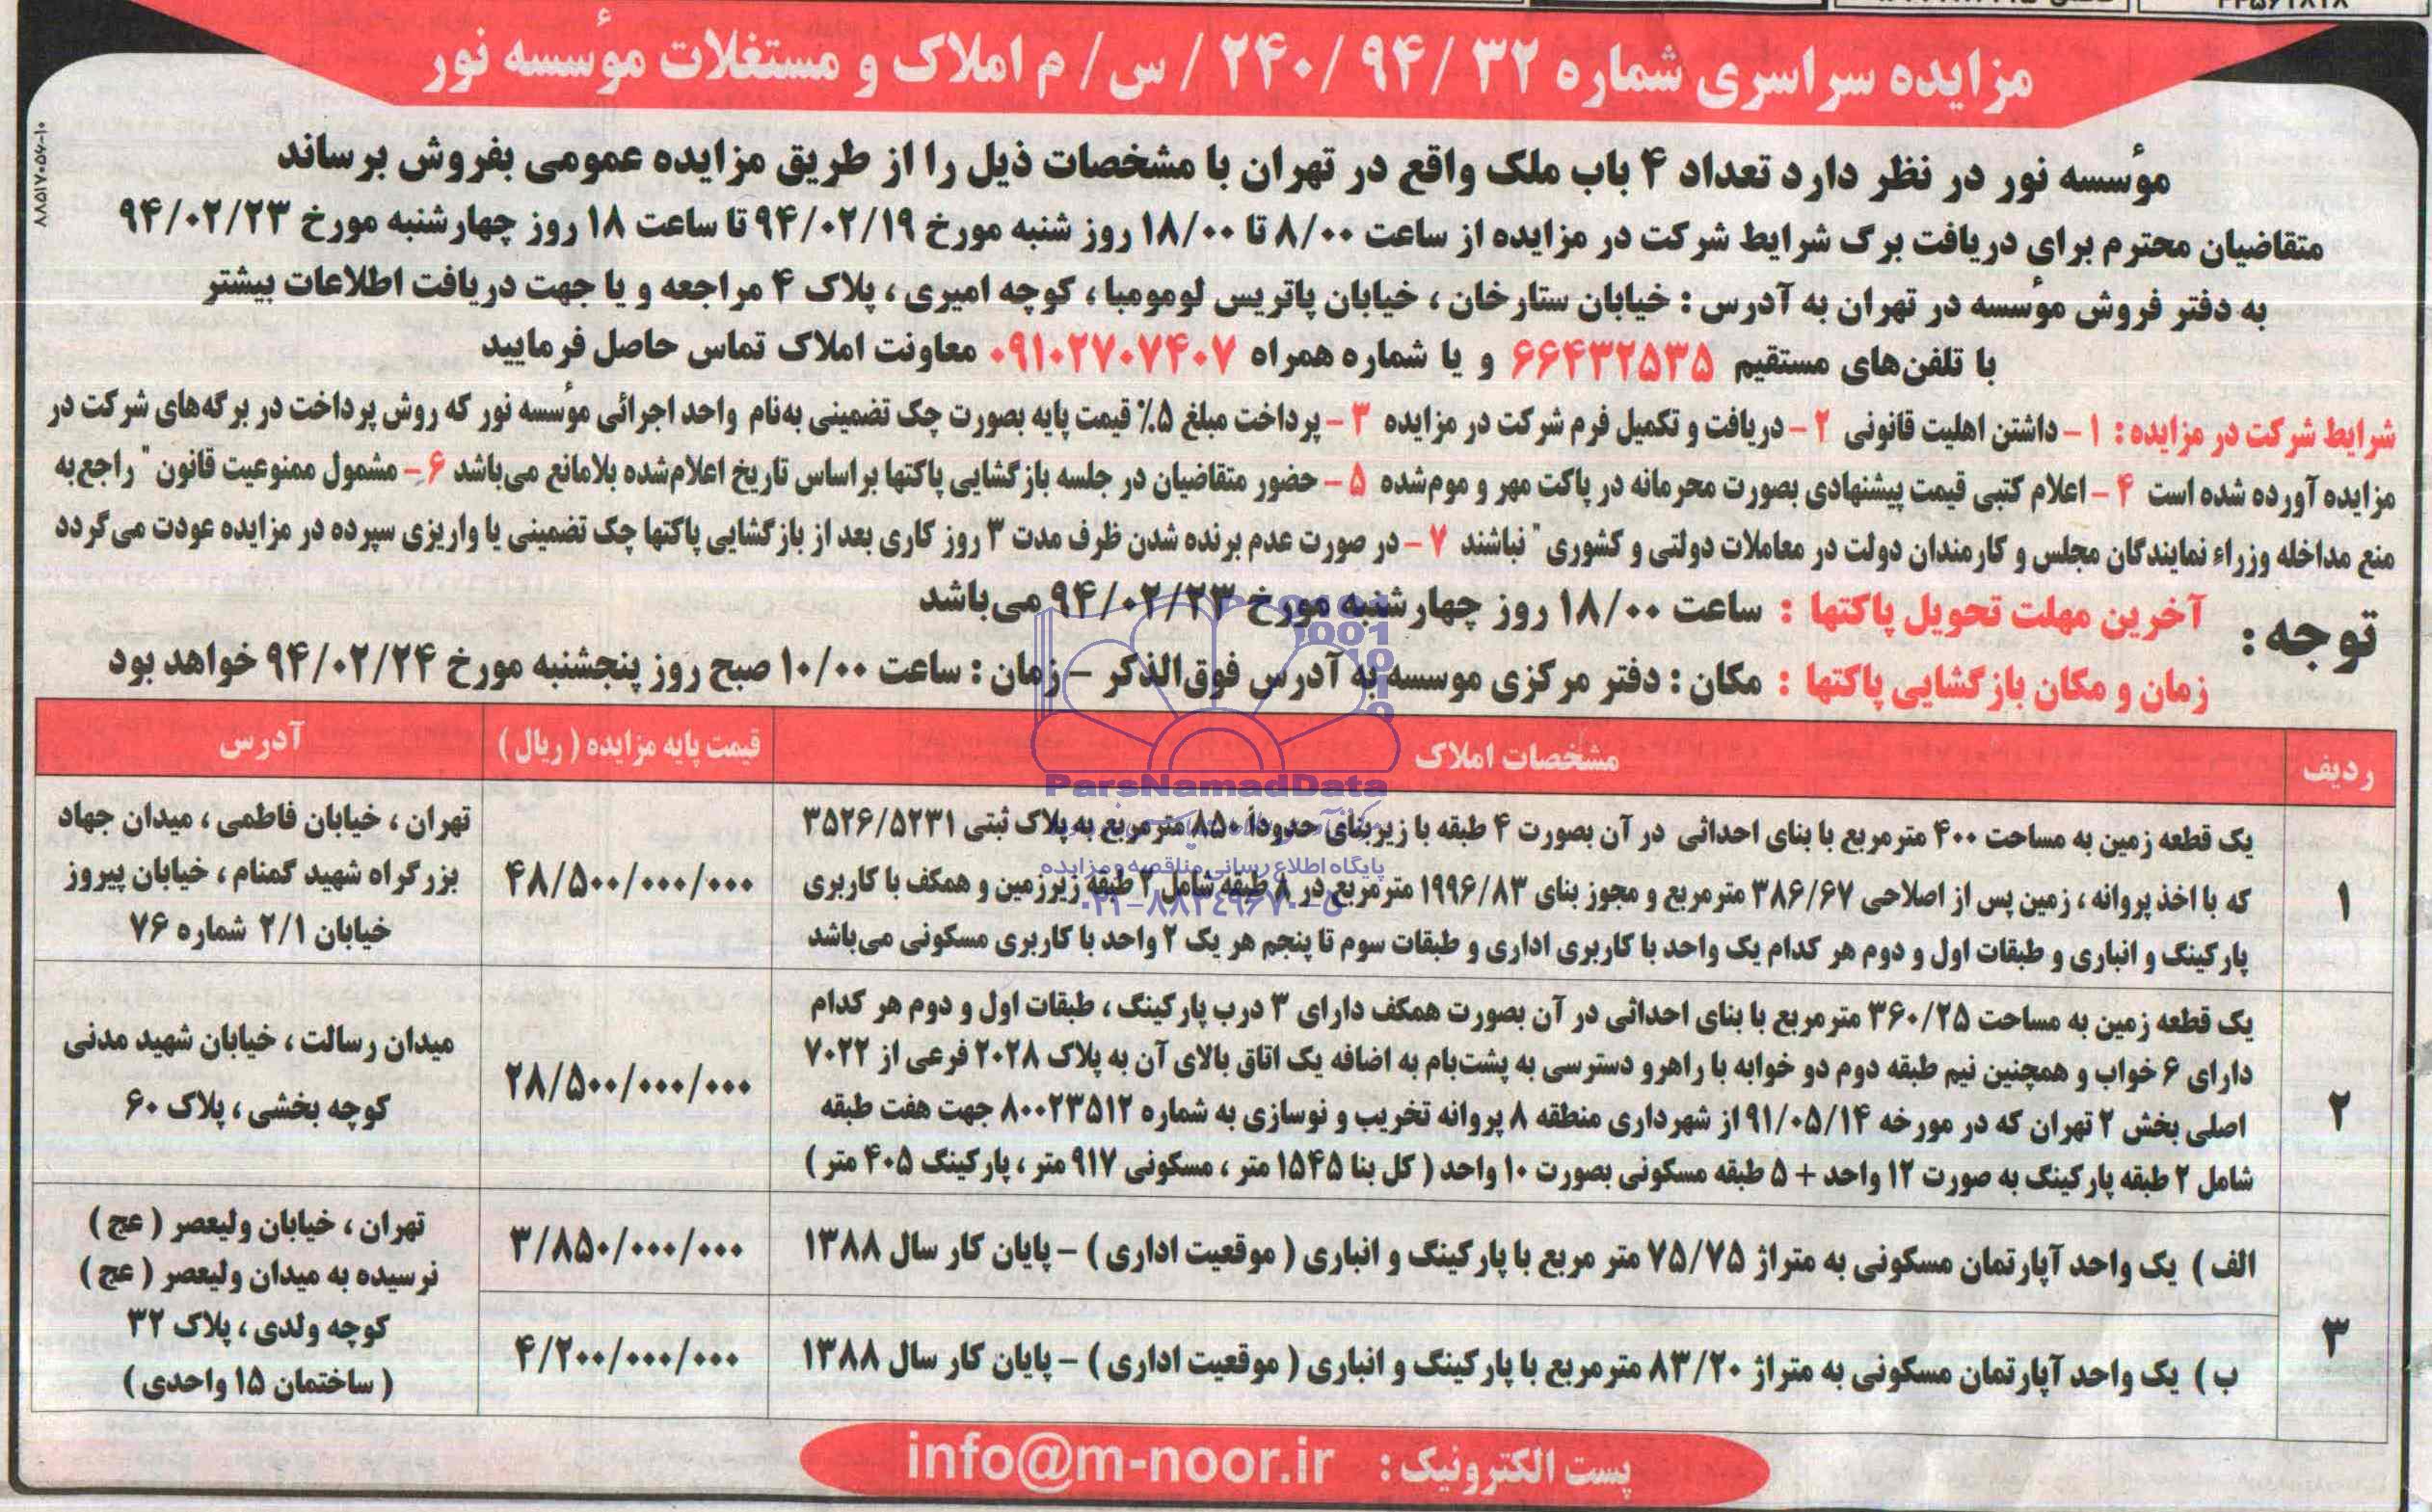 مزایده سراسری شماره ۳۲ /۹۴ /۲۴۰ / س/ م املاک و مستغلات مؤسسه نور
۸۸۵۱۷۰۵۶-۱۰
مؤسسه نور در نظر دارد تعداد ۴ باب ملک واقع در تهران با مشخصات ذیل را از طریق مزایده عمومی بفروش برساند
متقاضیان محترم برای دریافت برگ شرایط شرکت در مزایده از ساعت ۸/۰۰ تا ۱۸/۰۰ روز شنبه مورخ ۹۴/۰۲/۱۹ تا ساعت ۱۸ روز چهارشنبه مورخ ۹۴/۰۲/۲۳
به دفتر فروش مؤسسه در تهران به آدرس : خیابان ستارخان ، خیابان پاتریس لومومبا ، کوچه امیری ، پلاک ۴ مراجعه و یا جهت دریافت اطلاعات بیشتر
با تلفن‌های مستقیم ۶۶۴۳۲۵۳۵ و یا شماره همراه ۰۹۱۰۲۷۰۷۴۰۷ معاونت املاک تماس حاصل فرمایید
شرایط شرکت در مزایده : ۱ – داشتن اهلیت قانونی ۲ – دریافت و تکمیل فرم شرکت در مزایده ۳ – پرداخت مبلغ ۵٪ قیمت پایه بصورت چک تضمینی به‌نام واحد اجرائی مؤسسه نور که روش پرداخت در برگه‌های شرکت در
مزایده آورده شده است ۴ – اعلام کتبی قیمت پیشنهادی بصورت محرمانه در پاکت مهر و موم‌شده ۵ – حضور متقاضیان در جلسه بازگشایی پاکتها براساس تاریخ اعلام‌شده بلامانع می‌باشد ۶ – مشمول ممنوعیت قانون " راجع‌به
منع مداخله وزراء نمایندگان مجلس و کارمندان دولت در معاملات دولتی و کشوری " نباشند ۷ – در صورت عدم برنده شدن ظرف مدت ۳ روز کاری بعد از بازگشایی پاکتها چک تضمینی یا واریزی سپرده در مزایده عودت می‌گردد
توجه :
آخرین مهلت تحویل پاکتها : ساعت ۱۸/۰۰ روز چهارشنبه مورخ ۹۴/۰۲/۲۳ می‌باشد
زمان و مکان بازگشایی پاکتها : مکان : دفتر مرکزی موسسه به آدرس فوق‌الذکر – زمان : ساعت ۱۰/۰۰ صبح روز پنجشنبه مورخ ۹۴/۰۲/۲۴ خواهد بود
ردیف مشخصات املاک قیمت پایه مزایده ( ریال ) آدرس
۱
یک قطعه زمین به مساحت ۴۰۰ مترمربع با بنای احداثی در آن بصورت ۴ طبقه با زیربنای حدوداً ۸۵۰ مترمربع به پلاک ثبتی ۳۵۲۶/۵۲۳۱
که با اخذ پروانه ، زمین پس از اصلاحی ۳۸۶/۶۷ مترمربع و مجوز بنای ۱۹۹۶/۸۳ مترمربع در ۸ طبقه شامل ۲ طبقه زیرزمین و همکف با کاربری
پارکینگ و انباری و طبقات اول و دوم هر کدام یک واحد با کاربری اداری و طبقات سوم تا پنجم هر یک ۲ واحد با کاربری مسکونی می‌باشد
۴۸/۵۰۰/۰۰۰/۰۰۰
تهران ، خیابان فاطمی ، میدان جهاد
بزرگراه شهید گمنام ، خیابان پیروز
خیابان ۲/۱ شماره ۷۶
۲
یک قطعه زمین به مساحت ۳۶۰/۲۵ مترمربع با بنای احداثی در آن بصورت همکف دارای ۳ درب پارکینگ ، طبقات اول و دوم هر کدام
دارای ۶ خواب و همچنین نیم طبقه دوم دو خوابه با راهرو دسترسی به پشت‌بام به اضافه یک اتاق بالای آن به پلاک ۲۰۲۸ فرعی از ۷۰۲۲
اصلی بخش ۲ تهران که در مورخه ۹۱/۰۵/۱۴ از شهرداری منطقه ۸ پروانه تخریب و نوسازی به شماره ۸۰۰۲۳۵۱۲ جهت هفت طبقه
شامل ۲ طبقه پارکینگ به صورت ۱۲ واحد + ۵ طبقه مسکونی بصورت ۱۰ واحد ( کل بنا ۱۵۴۵ متر ، مسکونی ۹۱۷ متر ، پارکینگ ۴۰۵ متر )
۲۸/۵۰۰/۰۰۰/۰۰۰
میدان رسالت ، خیابان شهید مدنی
کوچه بخشی ، پلاک ۶۰
۳
الف ) یک واحد آپارتمان مسکونی به متراژ ۷۵/۷۵ متر مربع با پارکینگ و انباری ( موقعیت اداری ) – پایان کار سال ۱۳۸۸
۳/۸۵۰/۰۰۰/۰۰۰
ب ) یک واحد آپارتمان مسکونی به متراژ ۸۳/۲۰ مترمربع با پارکینگ و انباری ( موقعیت اداری ) – پایان کار سال ۱۳۸۸
۴/۲۰۰/۰۰۰/۰۰۰
تهران ، خیابان ولیعصر ( عج )
نرسیده به میدان ولیعصر ( عج )
کوچه ولدی ، پلاک ۳۲
( ساختمان ۱۵ واحدی )
پست الکترونیک : info@m-noor.ir
ParsNamadData
پایگاه اطلاع رسانی مناقصه و مزایده
۰۲۱-۸۸۳۴۹۶۷۰-۵